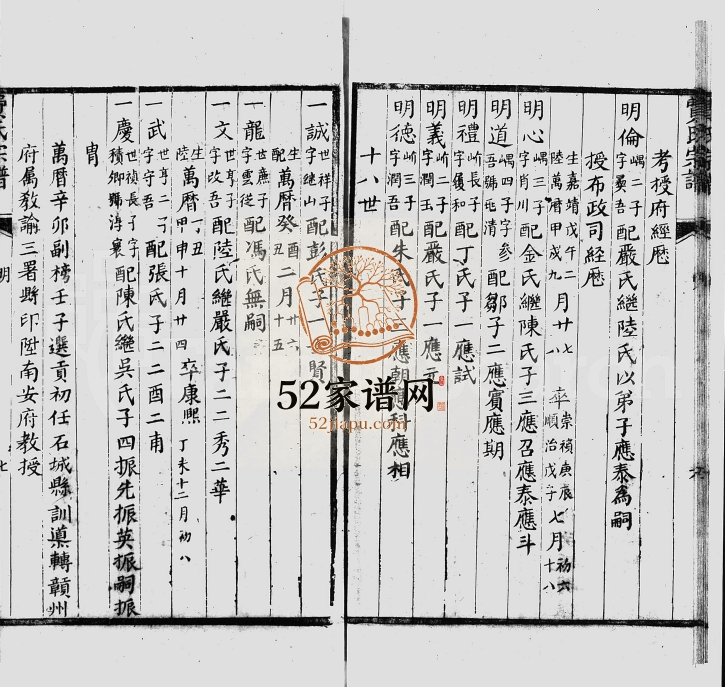 考授府經歷
明倫 嵎二子 字彝吾 配嚴氏繼陸氏以弟子應泰為嗣
授布政司經歷
生 嘉靖戊午二 月廿七 卒 崇禎庚辰 七月 初六
陸 萬曆甲戌九 月十八 順治戊子 十八
明心 嵎三子 字肖川 配金氏繼陳氏子三應召應泰應斗
明道 嵎四子字參 吾號 清 配鄒子二應賓應期
明禮 㟃長子 字 和 配丁氏子一應試
明義 㟃二子 字潤玉 配嚴氏子一應元
明德 㟃三子 字潤吾 配朱氏子 應朝應科應相
十八世
一誠 世祥子 字继山 配彭氏子一 賢
生 配 萬曆癸 酉 丑 二月 廿六 十五
一龍 世廉子 字雲從 配馮氏無嗣
一文 世亨子 字改吾 配陸氏繼嚴氏子二二秀二華
生 陸 萬曆 丁丑 甲申十月廿四 卒康熙 丁未十二月初八
一武 世亨二子 字守吾 配張氏子二二酉二南
一慶 世禎長子字 積卿號淳襄 配陳氏繼吳氏子四振先振英振嗣振
胄
萬曆辛卯副榜壬子選貢初任石城縣訓䆃轉贛州
府属教諭三署縣印陞南安府教授
明
七
52家谱网
52jiapu.com